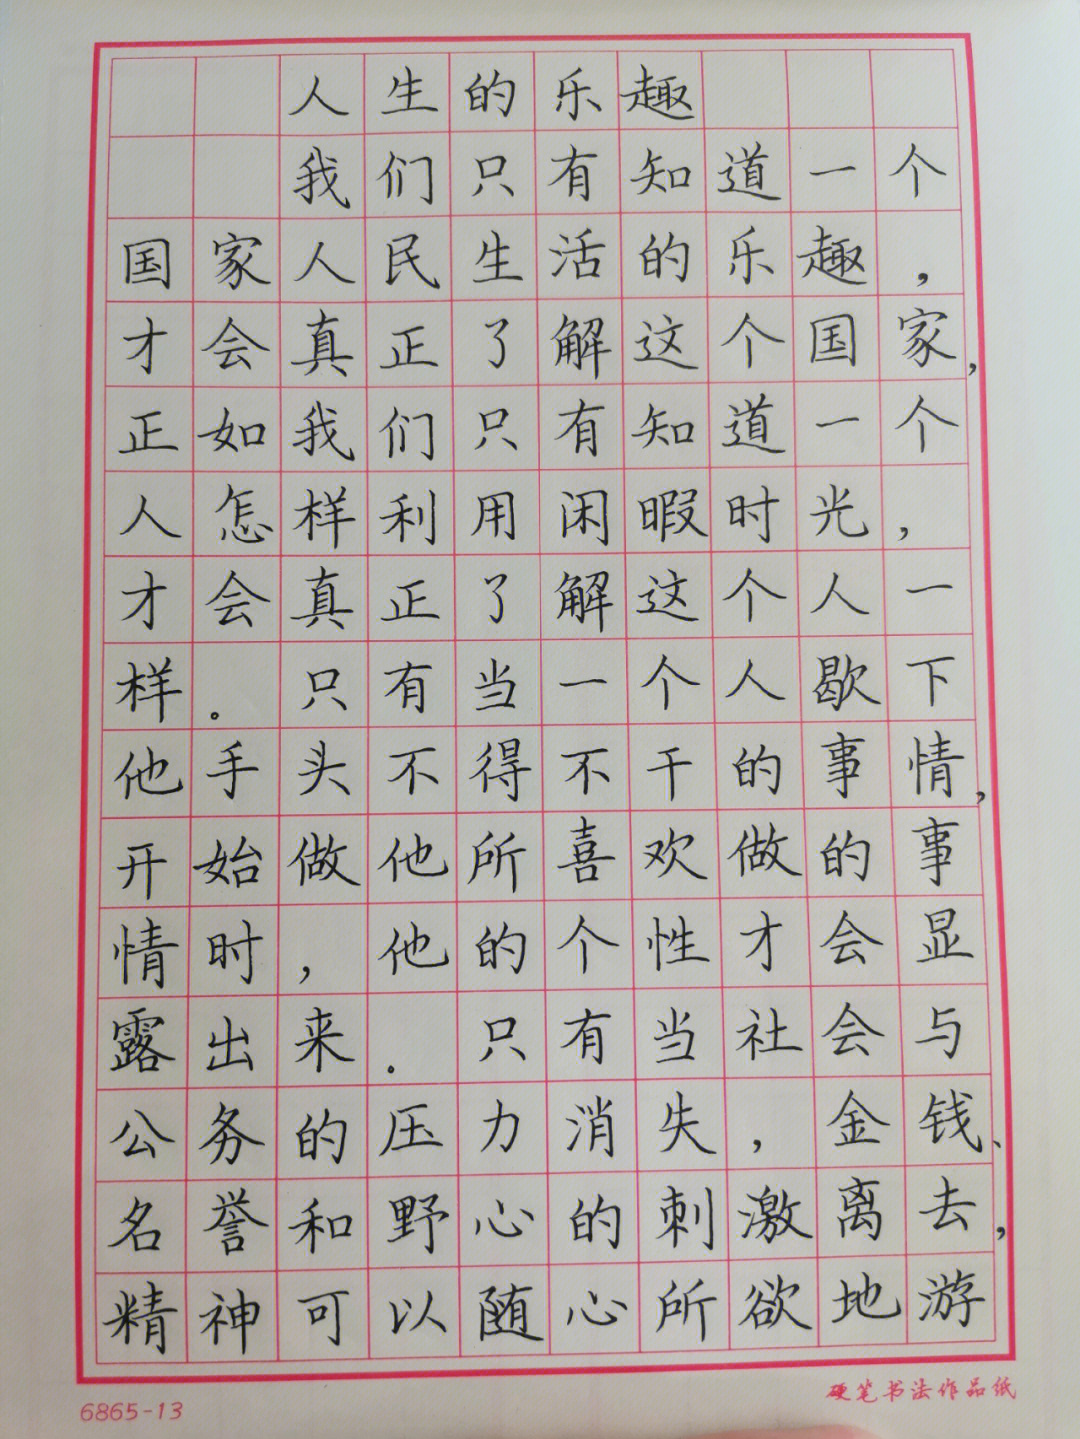 人生的乐趣
我们只有知道一个
国家人民生活的乐趣，
才会真正了解这个国家，
正如我们只有知道一个
人怎样利用闲暇时光，
才会真正了解这个人一
样。只有当一个人歇下
他手头不得不干的事情，
开始做他所喜欢做的事
情时，他的个性才会显
露出来．只有当社会与
公务的压力消失，金钱、
名誉和野心的刺激离去，
精神可以随心所欲地游
硬笔书法作品纸
6865-13